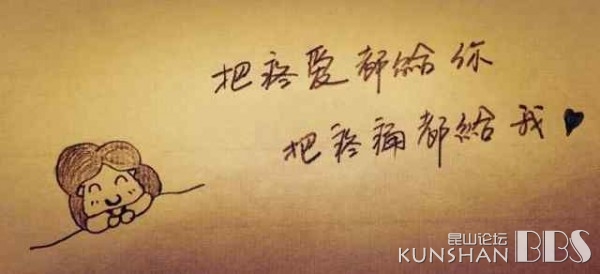 把疼爱都给你
把疼痛都给我♥
昆山论坛
KUNSHAN BBS